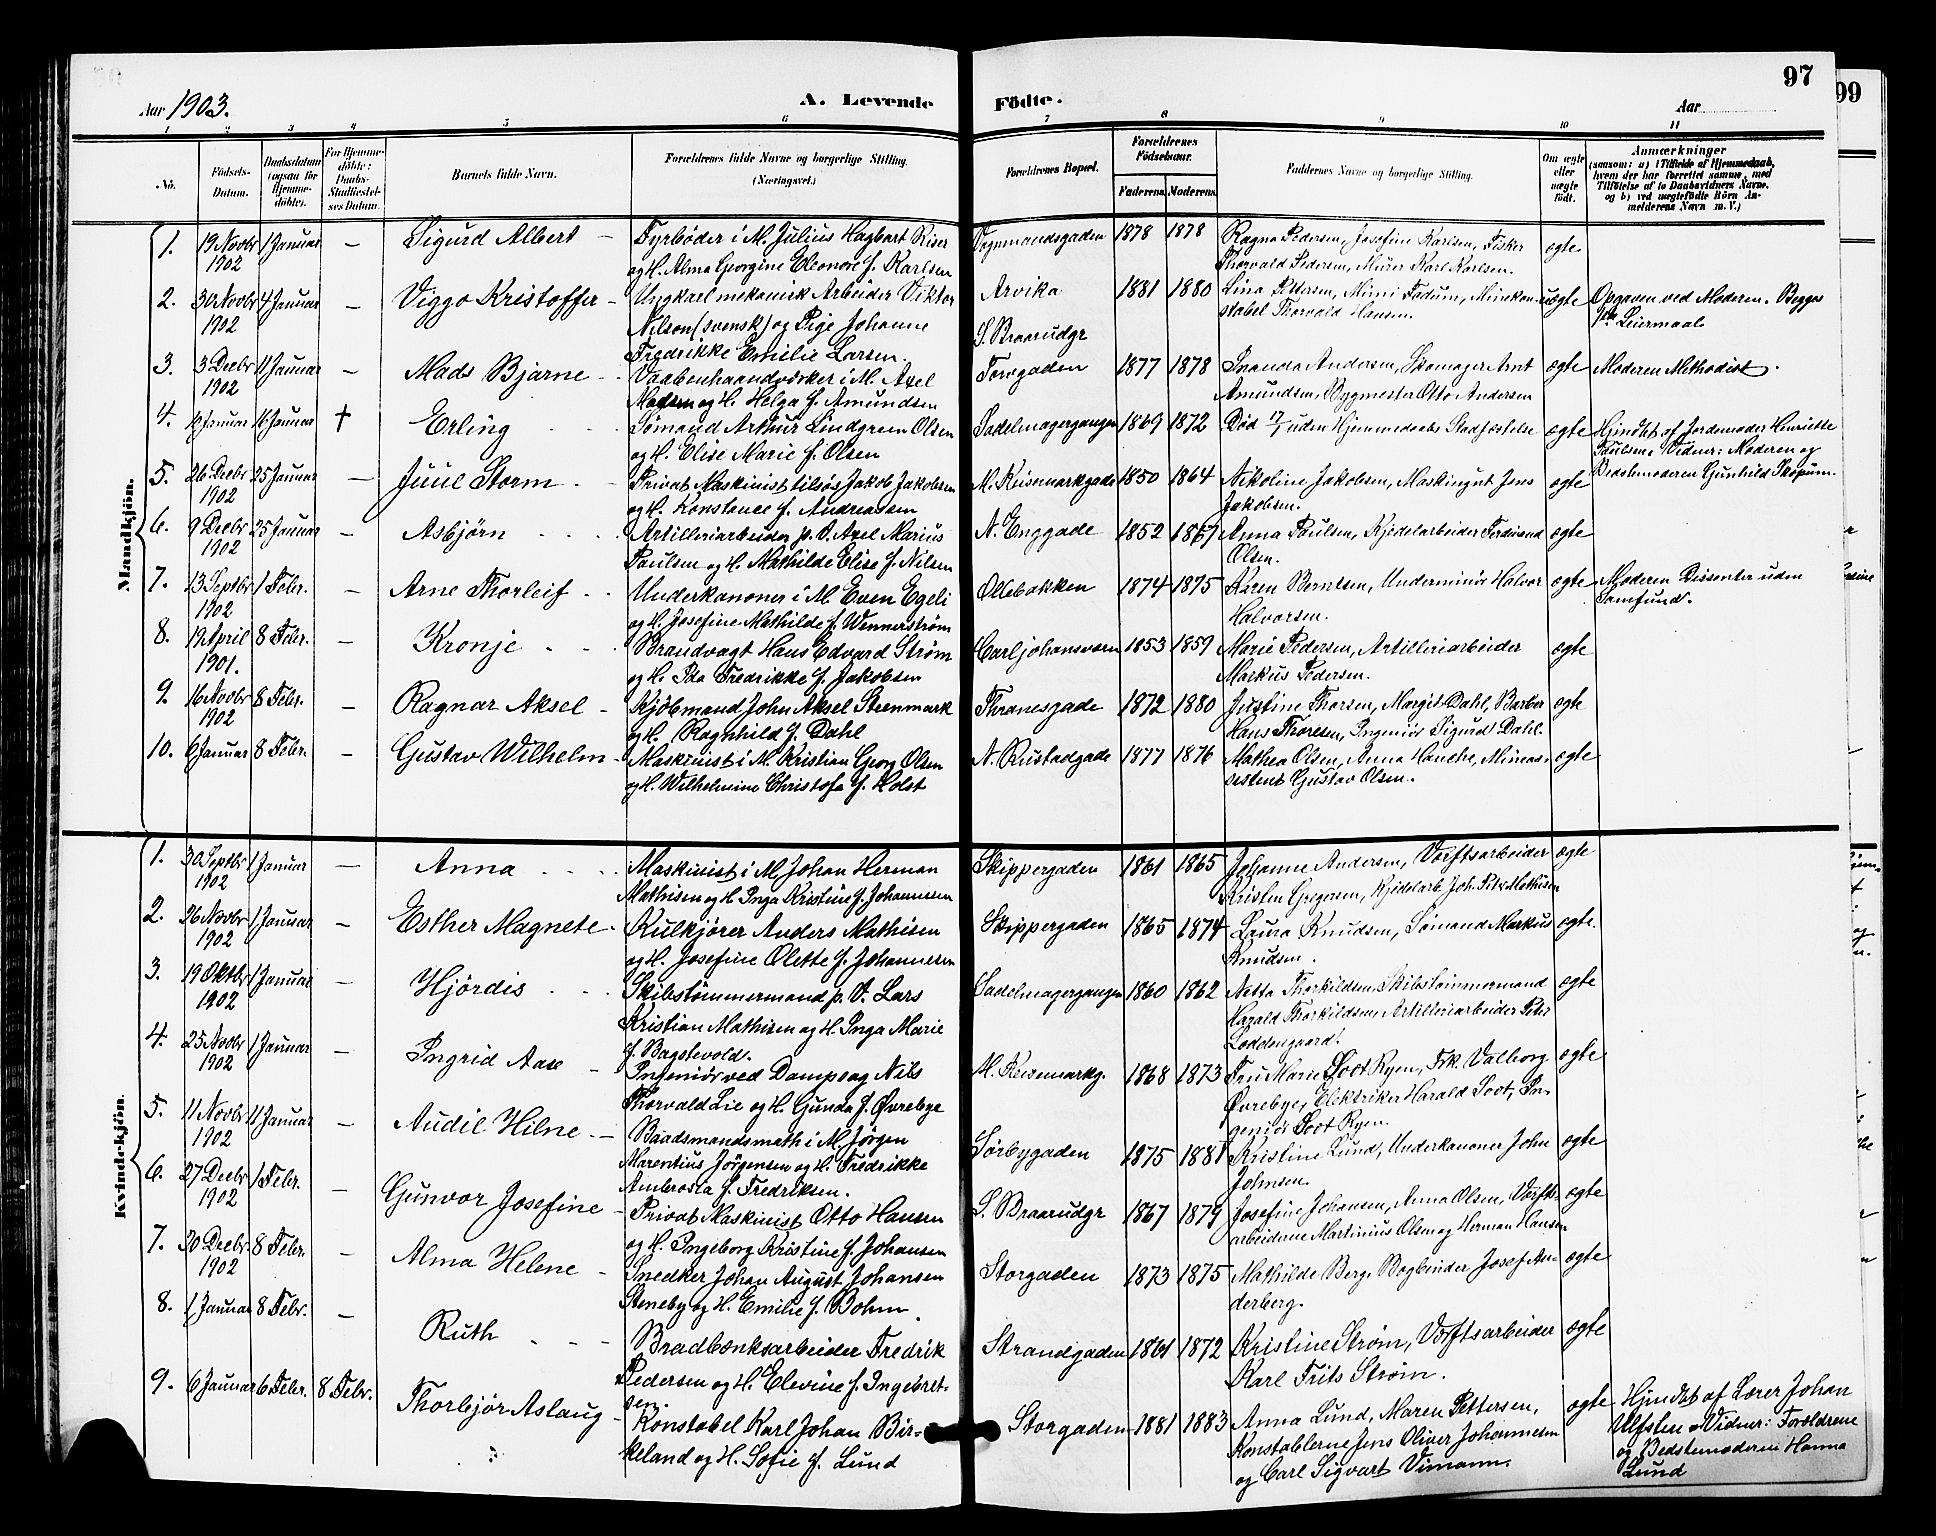 97
99
Aar 1903.
A. Levende
Födte.
Aar
1 2 3 4 5 6 7 8 9 10 11
No.
Födsels-Datum.
Daabsdatum (ogsaa for Hjemme-döbte).
For Hjemme-döbte: Daabs-Stadfæstel-ses Datum.
Barnets fulde Navn.
Forældrenes fulde Navne og borgerlige Stilling. (Næringsvei.)
Forældrenes Bopæl.
Forældrenes Födselsaar.
Faderens. Moderens.
Faddernes Navne og borgerlige Stilling.
Om ægte eller uægte födt.
Anmærkninger
(saasom: a) i Tilfælde af Hjemmedaab, hvem der har forrettet samme, med Tilföielse af to Daabsvidners Navne, og b) ved uægtefödte Börn An-melderens Navn m. V.)
Mandkjön.
1. 19 Novbr 1902 1 Januar — Sigurd Albert — Fyrbøder i M. Julius Hagbart Riser og H. Alma Georgine Eleonore f. Karlsen Vognmandsgaden 1878 1878 Ragna Pedersen, Josefine Karlsen, Fisker Thorvald Pedersen, Murer Karl Karlsen. ægte
2. 30 Novbr 1902 4 Januar — Viggo Kristoffer — Ungkarl mekanisk Arbeider Viktor Nilson (svensk) og Pige Johanne Fredrikke Emilie Larsen. Arvika S. Braarudgr 1881 1880 Lina Pettersen, Mimi Fadum, Minekon-stabel Thorvald Hansen. uægte Opgaven ved Moderen. Begges 1ste Leiermaal
3. 3 Decbr 1902 11 Januar — Mads Bjarne — Vaabenhaandværker i M. Axel Madsen og H. Helga f. Amundsen Torvgaden 1877 1878 Inanda Andersen, Skomager Arnt Amundsen, Bygmester Otto Andersen ægte Moderen Methodist.
4. 12 Januar 16 Januar † Erling Sømand Arthur Lindgreen Olsen og H. Elise Marie f. Olsen Sadelmagergangen 1869 1872 Død 17/1 uden Hjemmedaabs Stadfæstelse ægte Hjmdøbt af Jordemoder Henriette Paulsen. Vidner: Moderen og Bedstemoderen Gunhild Skopum.
5. 26 Decbr 1902 25 Januar — Juul Storm — Privat Maskinist tilsøs Jakob Jakobsen og H. Konstance f. Andreassen N. Keisemarkgade 1850 1864 Nikoline Jakobsen, Maskingut Jens Jakobsen. ægte
6. 9 Decbr 1902 25 Januar — Asbjørn Artilleriarbeider p. V. Axel Marius Paulsen og H. Mathilde Elise f. Nilsen N. Enggade 1852 1867 Anna Paulsen, Kjedelarbeider Ferdinand Olsen. ægte
7. 13 Septbr 1902 1 Febr. — Arne Thorleif Underkanoner i M. Even Egeli og H. Josefine Mathilde f. Wennerstrøm Ollebakken 1874 1875 Karen Berntsen, Underminør Halvor Halvorsen. ægte Moderen Dissenter uden Samfund.
8. 12 April 1901. 8 Febr. — Kronje Brandvagt Hans Edvard Strøm og H. Ida Fredrikke f. Jakobsen Carljohansværn 1853 1859 Marie Pedersen, Artilleriarbeider Markus Pedersen. ægte
9. 16 Novbr 1902 8 Febr. — Ragnar Aksel — Kjøbmand John Aksel Steenmark og H. Ragnhild f. Dahl Thranesgade 1872 1880 Justine Thorsen, Margit Dahl, Barber Hans Thoresen, Ingeniør Sigurd Dahl. ægte
10. 6 Januar 8 Febr. — Gustav Wilhelm — Maskinist i M. Kristian Georg Olsen og H. Wilhelmine Christofa f. Holst N. Rustadgade 1877 1876 Mathea Olsen, Anna Hanche, Mineas-sistent Gustav Olsen. ægte
Kvindekjön.
1. 30 Septbr 1902 1 Januar — Anna Maskinist i M. Johan Herman Mathisen og H. Inga Kristine f. Johannesen Skippergaden 1861 1865 Johanne Andersen, Værftsarbeider Kristen Gregersen, Kjedelarb. Joh. Petr. Mathisen ægte
2. 26 Novbr 1902 1 Januar — Esther Magnete — Kulkjører Anders Mathisen og H. Josefine Olette f. Johannesen Skippergaden 1865 1874 Laura Knudsen, Sømand Markus Knudsen. ægte.
3. 19 Oktbr 1902 1 Januar — Hjördis Skibstømmermand p. V. Lars Kristian Mathisen og H. Inga Marie f. Bagstevold. Sadelmagergangen 1860 1862 Netta Thorkildsen, Skibstømmermand Harald Thorkildsen, Artilleriarbeider Peter Loddengaard. ægte
4. 25 Novbr 1902 1 Januar — Ingrid Aase — Ingeniør ved Dampsag Nils Thorvald Lie og H. Gunda f. Øvrebye N. Keisemarkg. 1868 1873 Fru Marie Soot Ryen, Frk. Valborg Øvrebye, Elektriker Harald Soot, In-geniør Soot Ryen. ægte
5. 11 Novbr 1902 11 Januar — Audil Hilne — Baadsmandsmath i M. Jørgen Marentius Jørgensen og H. Fredrikke Ambrosia f. Fredriksen. Sørbygaden 1875 1881 Kristine Lund, Underkanoner John Johnsen. ægte
6. 27 Decbr 1902 1 Febr. — Gunvor Josefine — Privat Maskinist Otto Hansen og H. Ingeborg Kristine f. Johansen S. Braarudgr 1867 1879 Josefine Johansen, Anna Olsen, Værfts-arbeiderne Martinius Olsen og Herman Hansen ægte
7. 30 Decbr. 1902 8 Febr. — Alma Helene — Snedker Johan August Johansen Steneby og H. Emilie f. Bohm. Storgaden 1873 1875 Mathilde Berg, Bogbinder Josef An-derberg. ægte
8. 1 Januar 8 Febr. — Ruth Bradbænksarbeider Fredrik Pedersen og H. Elevine f. Ingebret-sen. Strandgaden 1861 1872 Kristine Strøm, Værftsarbeider Karl Frits Strøm. ægte
9. 6 Januar 6 Febr. 8 Febr. Thorbjør Aslaug — Konstabel Karl Johan Bir-keland og H. Sofie f. Lund Storgaden 1881 1883 Anna Lund, Maren Pettersen, Konstablerne Jens Oliver Johannesen og Carl Sigvart Vimann. ægte Hjmdøbt af Lærer Johan Ulfsten. Vidner: Forældrene og Bedstemoderen Hanna Lund